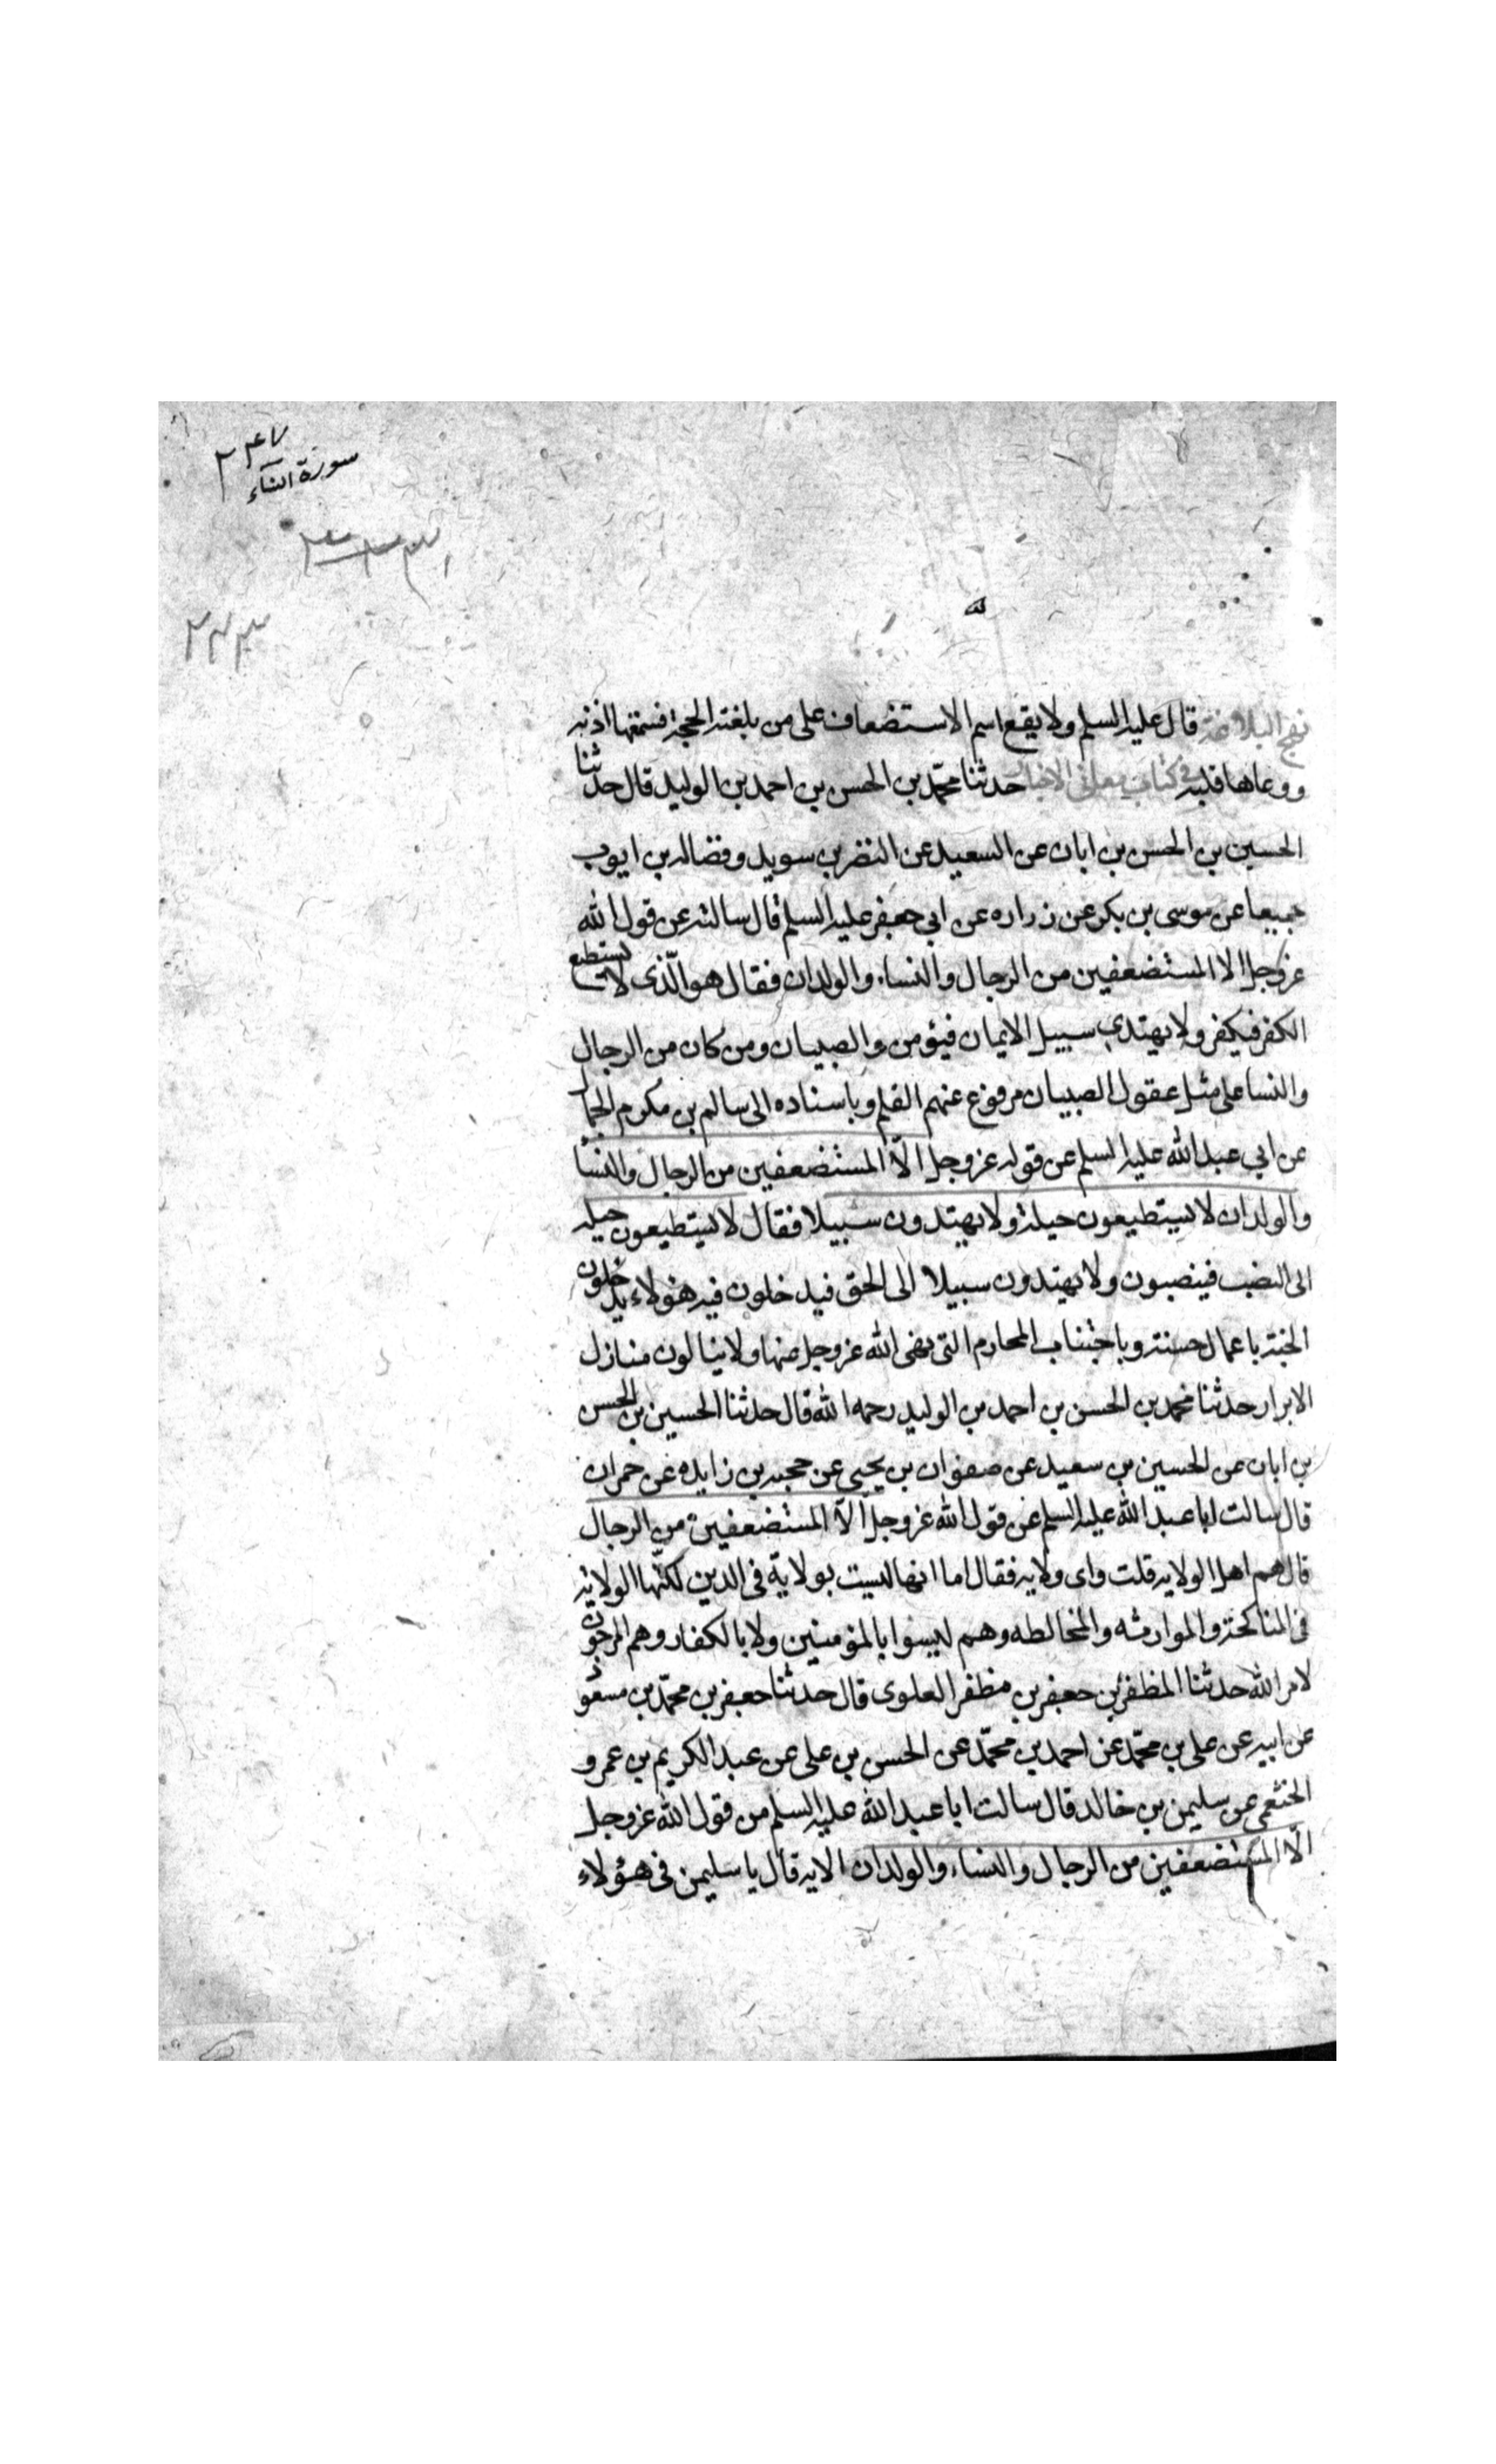 سورة النساء
نهج البلاغة قال عليه السلم ولا يقع اسم الاستضعاف على من بلغته الحجة فسمعتها اذنه
ووعاها قلبه فى كتاب معانى الاخبار حدثنا محمد بن الحسن بن احمد بن الوليد قال حدثنا
الحسين بن الحسن بن ابان عن السعيد عن النضر بن سويد وفضاله بن ايوب
جميعا عن موسى بن بكر عن زراره عن ابي جعفر عليه السلم قال سالته عن قول الله
عزوجل الا المستضعفين من الرجال والنساء والولدان فقال هو الّذى لا يستطيع
الكفر فيكفر ولا يهتدي سبيل الايمان فيؤمن والصبيان ومن كان من الرجال
والنسا على مثل عقول الصبيان مرفوع عنهم القلم وباسناده الى سالم بن مكرم الجمال
عن ابي عبد الله عليه السلم عن قوله عزوجل الّا المستضعفين من الرجال والنسأ
والولدان لا يستطيعون حيلة ولا يهتدون سبيلا فقال لا يستطيعون حيله
الى النصب فينصبون ولا يهتدون سبيلا الى الحق فيدخلون فيه هؤلاء يدخلون
الجنة باعمال حسنة وباجتناب المحارم التى نهى الله عزوجل عنها ولا ينالون منازل
الابرار حدثنا محمد بن الحسن بن احمد بن الوليد رحمه الله قال حدثنا الحسين بن الحسن
بن ابان عن الحسين بن سعيد عن صفوان بن يحيى عن حجر بن زايده عن حمران
قال سالت ابا عبد الله عليه السلم عن قول الله عزوجل الّا المستضعفين من الرجال
قال هم اهل الولايه قلت واى ولايه فقال اما انها ليست بولاية فى الدين لكنّها الولاية
فى المناكحة والموارثه والمخالطه وهم ليسوا بالمؤمنين ولا بالكفار وهم المرجون
لامر الله حدثنا المظفر بن جعفر بن مظفر العلوى قال حدثنا جعفر بن محمّد بن مسعو
عن ابيه عن على بن محمّد عن احمد بن محمّد عن الحسن بن على عن عبد الكريم بن عمرو
الخثعمي عن سليمن بن خالد قال سالت ابا عبد الله عليه السلم من قول الله عزوجل
الّا المستضعفين من الرجال والنساء والولدان الايه قال يا سليمن فى هؤلاء